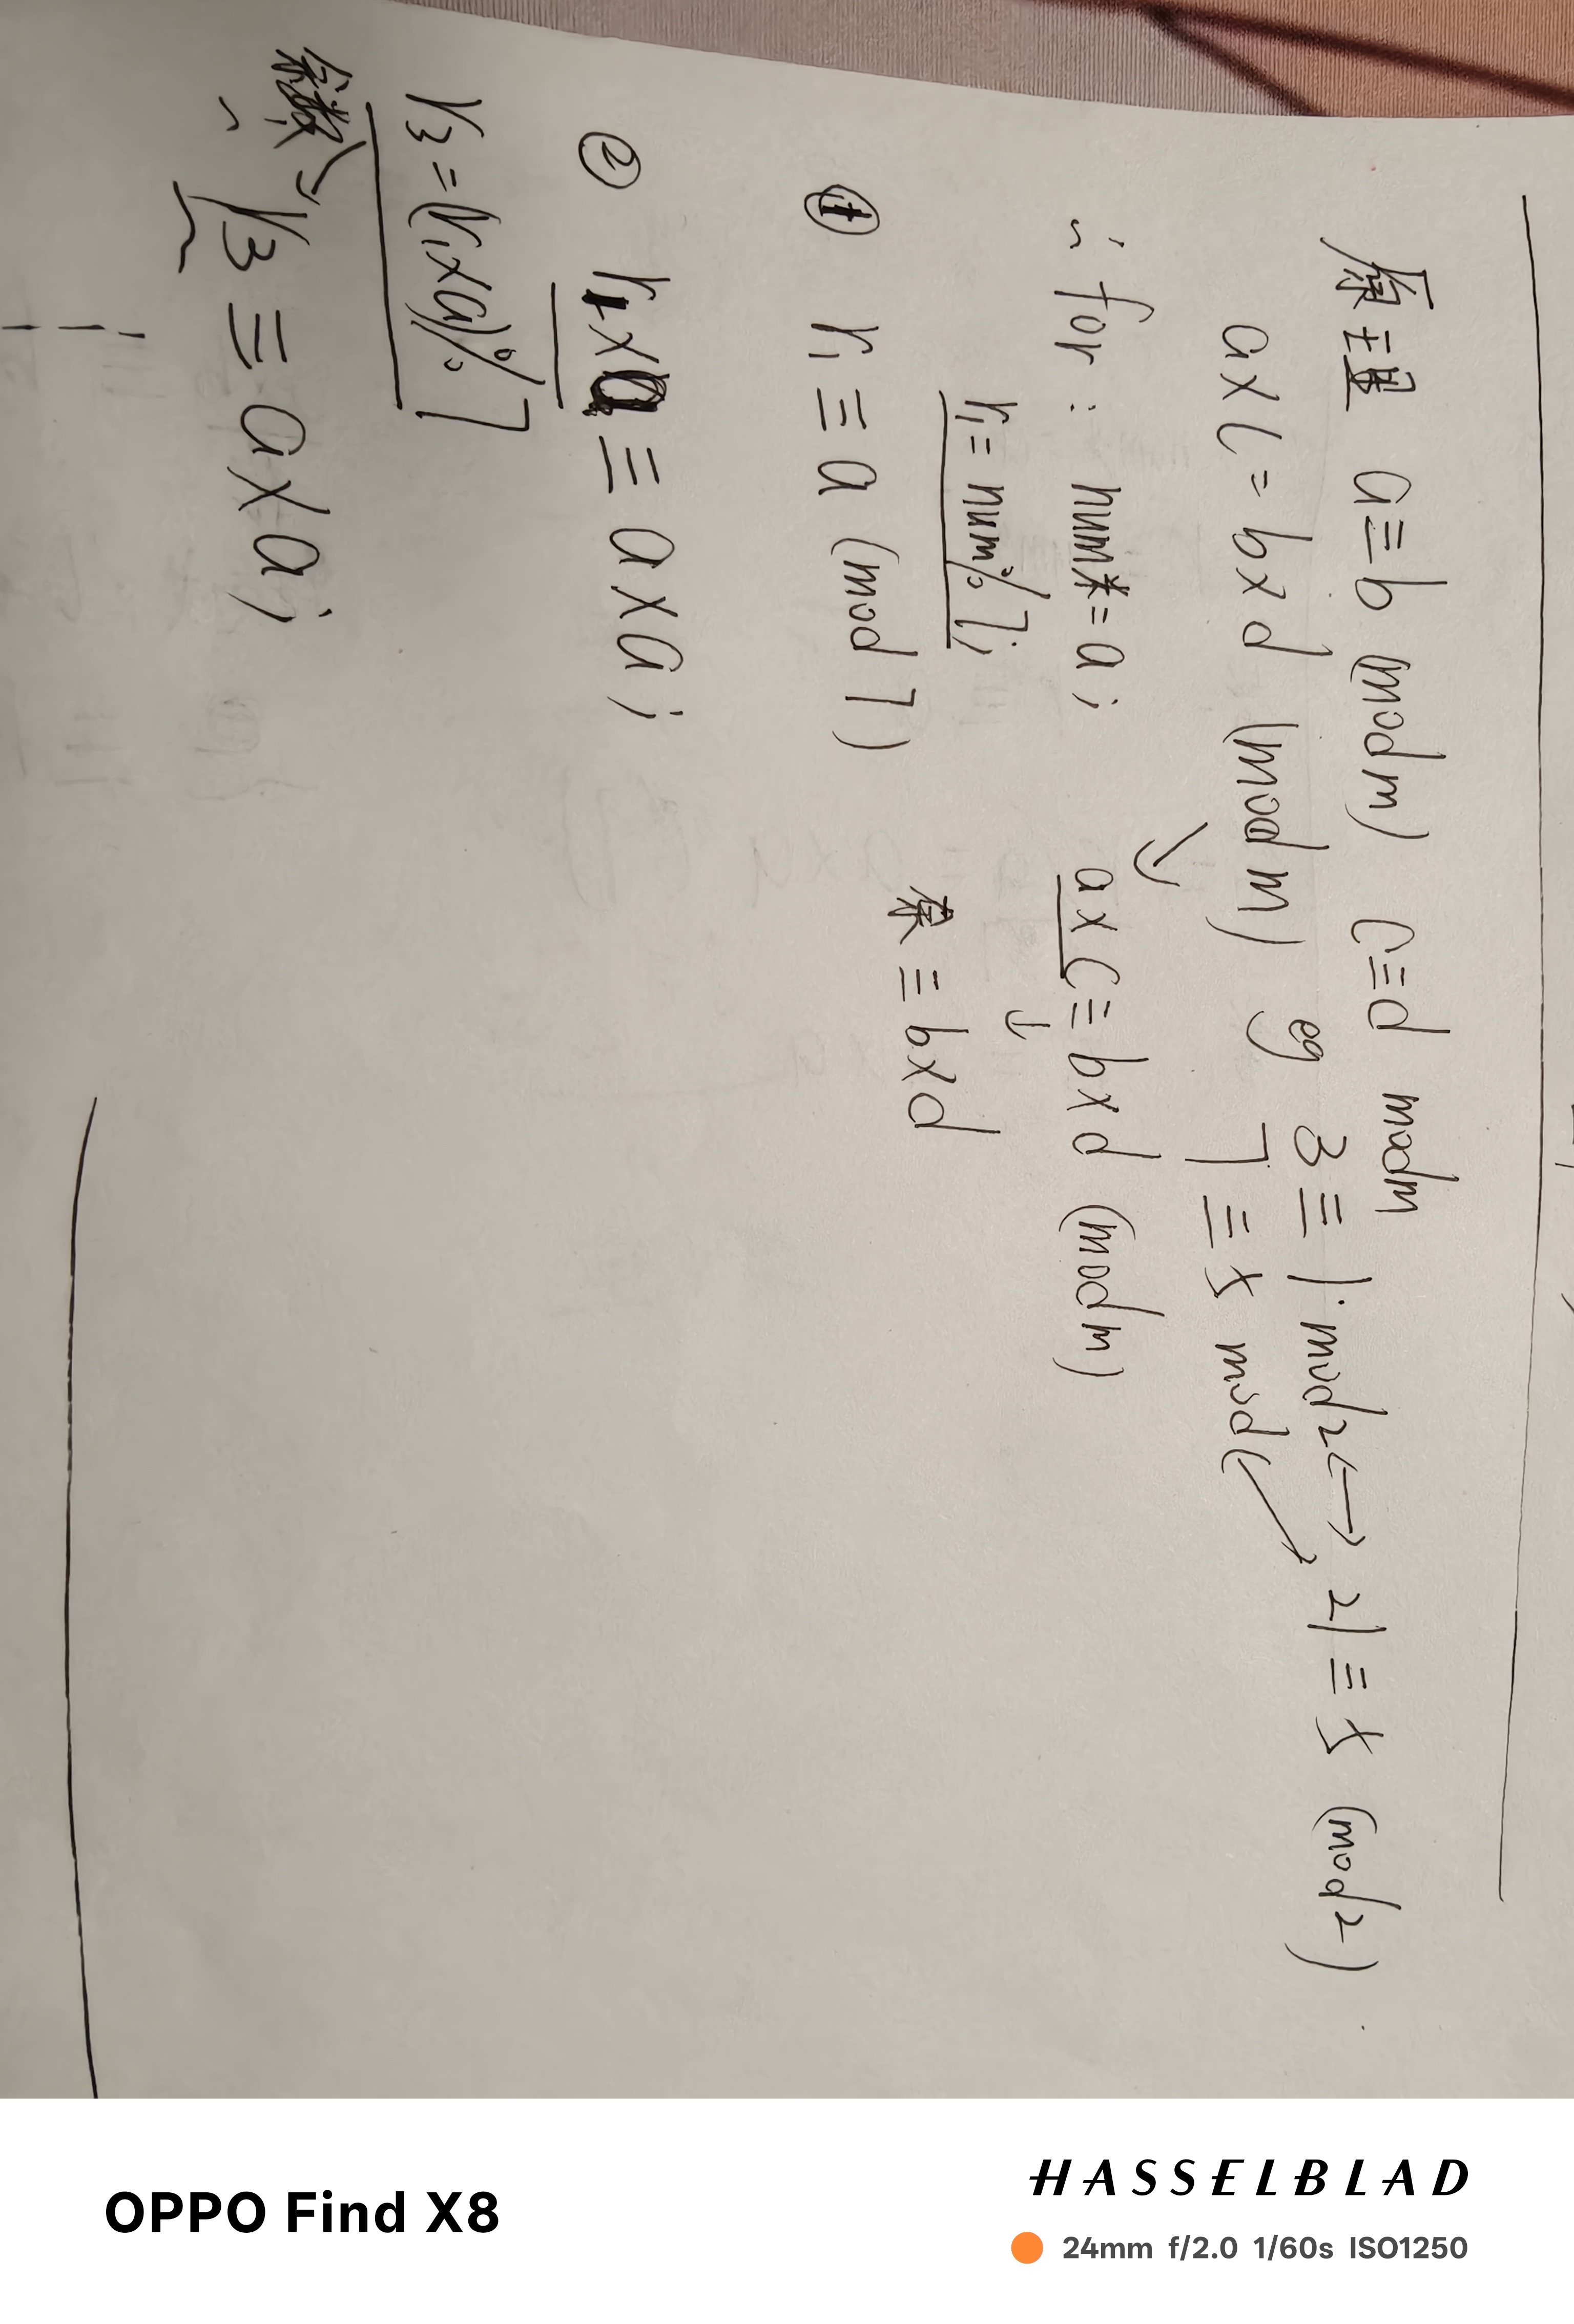 原理 a≡b (mod m) c≡d modm
a×c=b×d (mod m) eg 3≡1 mod2 ←→ 21≡5 (mod2)
7≡5 mod
∴ for: num*=a; a×c≡b×d (mod m)
r₁=num%7; ↓
余≡b×d
① r₁≡a (mod 7)
② r₁×a≡a×a;
r₃=(r₁×a)%7
余数
∴ r₃≡a×a;
OPPO Find X8
HASSELBLAD
24mm f/2.0 1/60s ISO1250